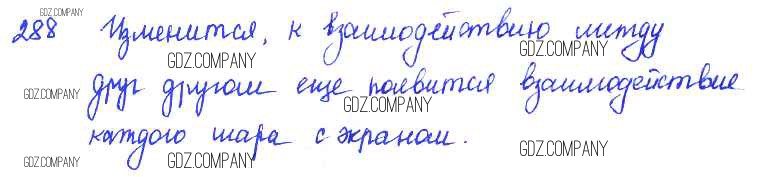 GDZ.COMPANY
288 Изменится, к взаимодействию между
GDZ.COMPANY GDZ.COMPANY
GDZ.COMPANY друг другом еще появится взаимодействие
GDZ.COMPANY
каждого шара с экраном.
GDZ.COMPANY GDZ.COMPANY GDZ.COMPANY